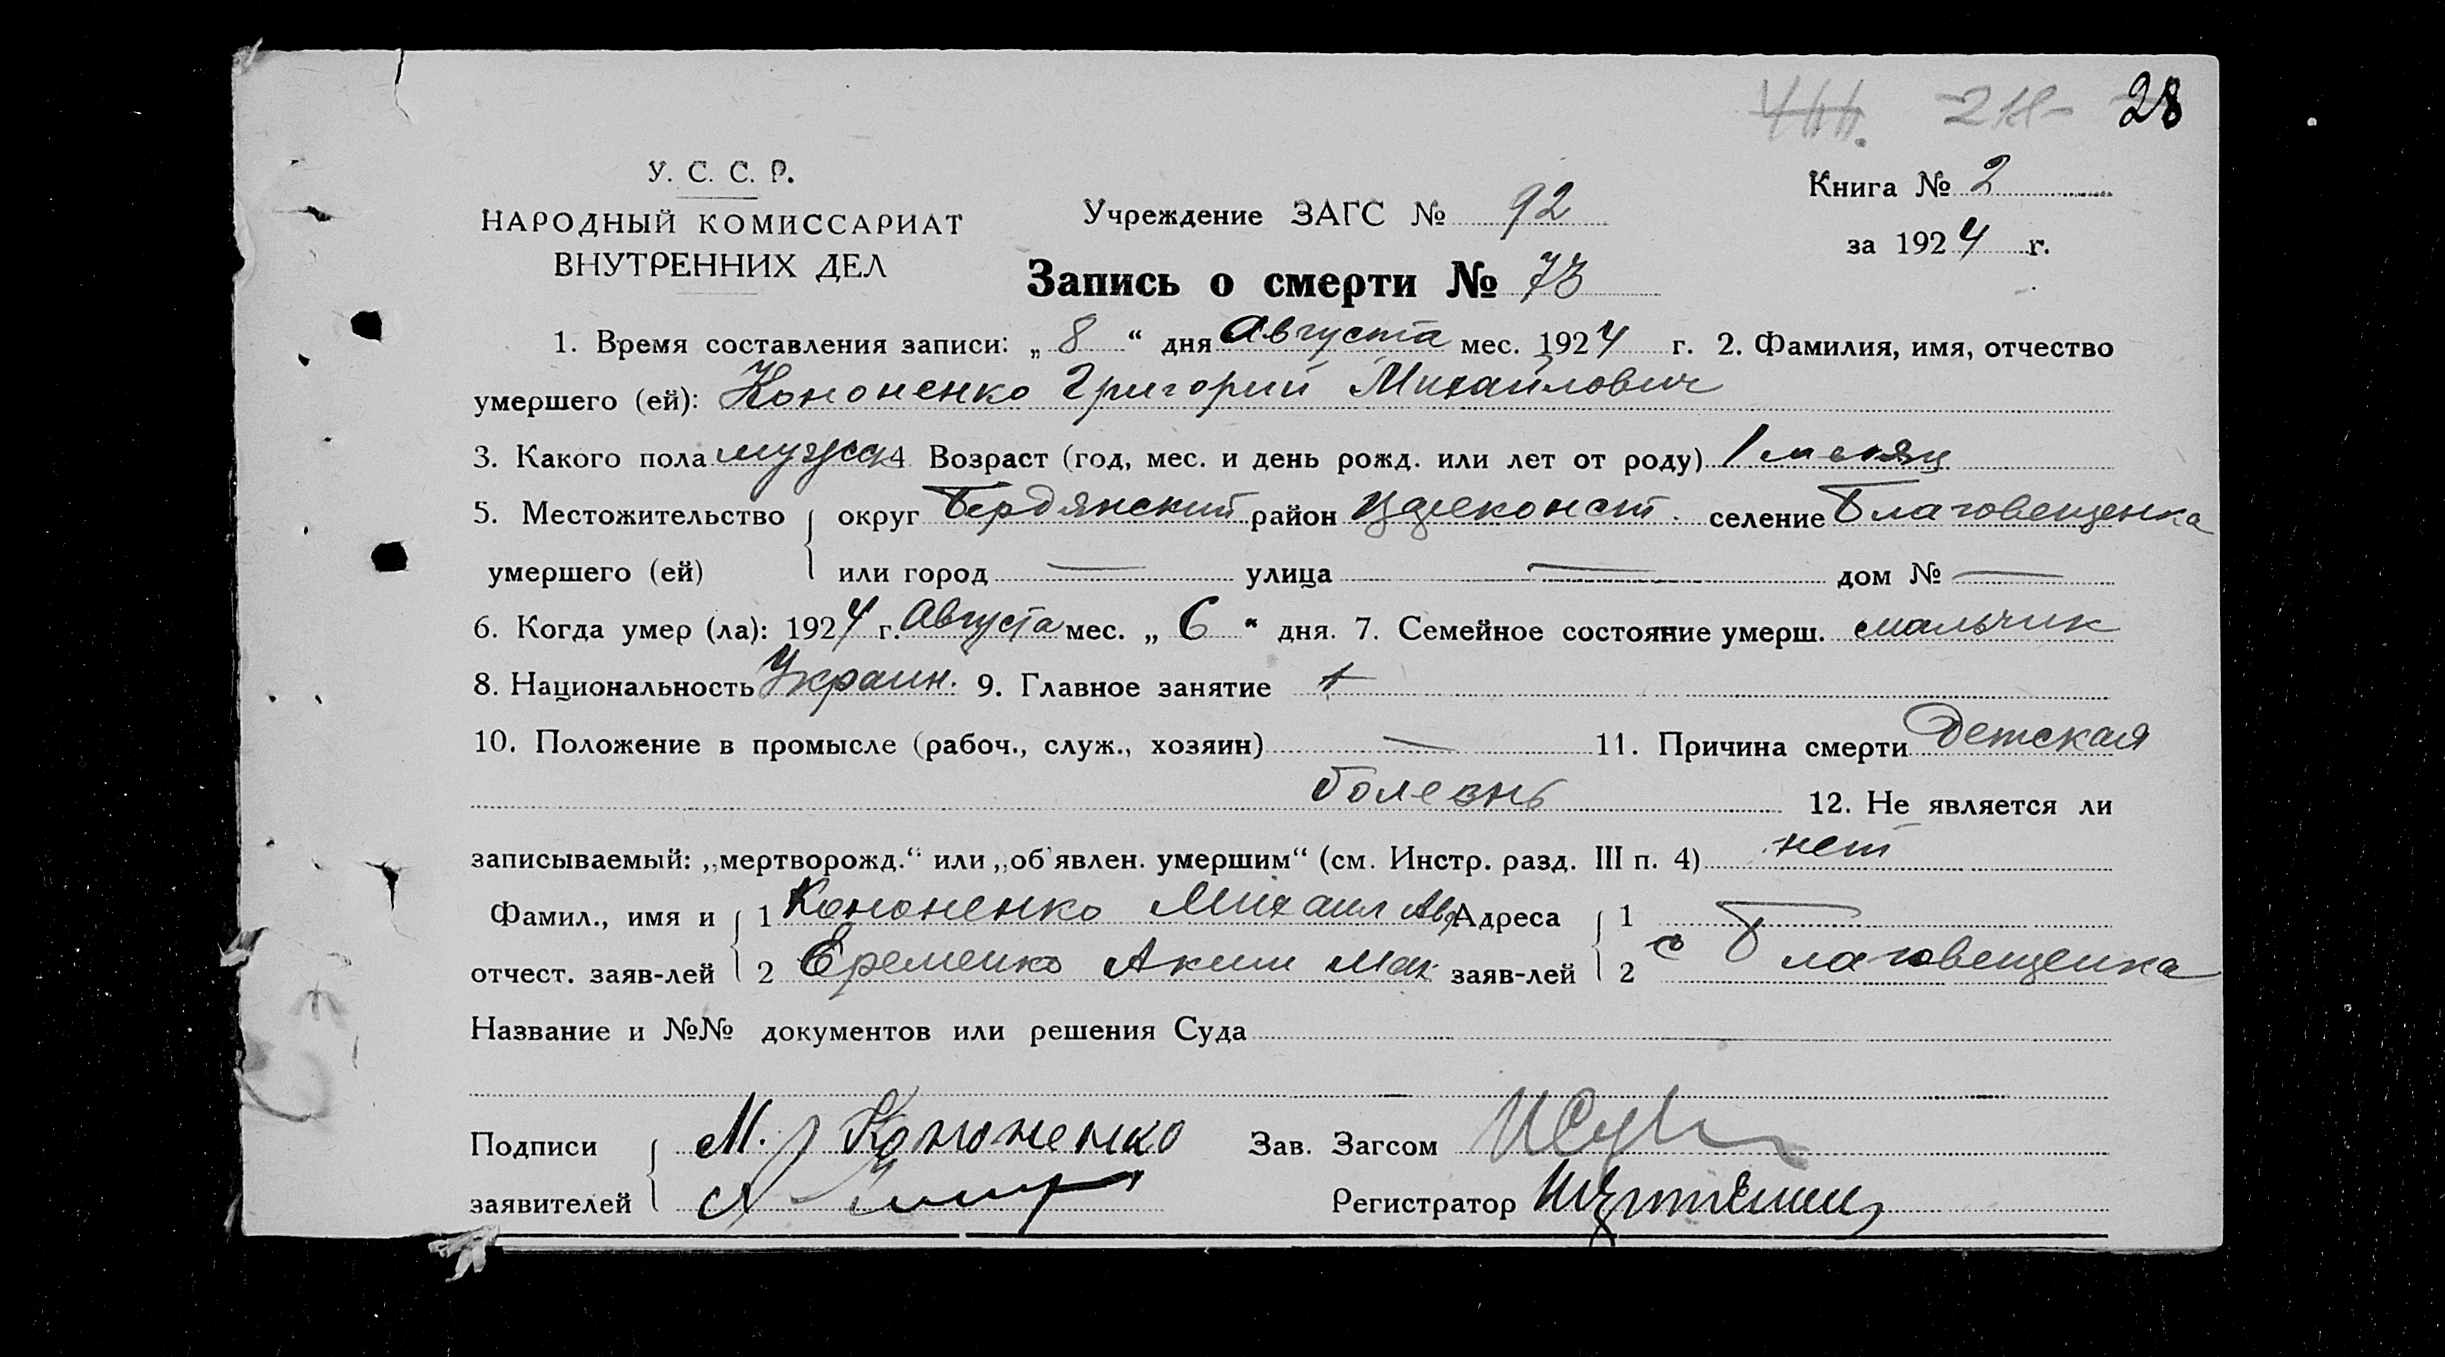 28
У. С. С. Р.
НАРОДНЫЙ КОМИССАРИАТ
ВНУТРЕННИХ ДЕЛ
Учреждение ЗАГС № 92
Книга № 2
за 1924 г.
Запись о смерти № 73
1. Время составления записи: „ 8 “ дня Августа мес. 1924 г. 2. Фамилия, имя, отчество
умершего (ей): Кононенко Григорий Михайлович
3. Какого пола мужск 4 Возраст (год, мес. и день рожд. или лет от роду) 1 месяц
5. Местожительство округ Бердянский район Цареконст. селение Благовещенка
умершего (ей) или город — улица — дом № —
6. Когда умер (ла): 1924 г. Августа мес. „ 6 “ дня. 7. Семейное состояние умерш. мальчик
8. Национальность Украин. 9. Главное занятие
10. Положение в промысле (рабоч., служ., хозяин) — 11. Причина смерти Детская
болезнь 12. Не является ли
записываемый: „мертворожд.“ или „об'явлен. умершим“ (см. Инстр. разд. III п. 4) нет
Фамил., имя и 1 Кононенко Михаил Адреса 1
отчест. заяв-лей 2 Еременко Аким Мак заяв-лей 2 с Благовещенка
Название и №№ документов или решения Суда
Подписи М. Кононенко Зав. Загсом
заявителей А Регистратор